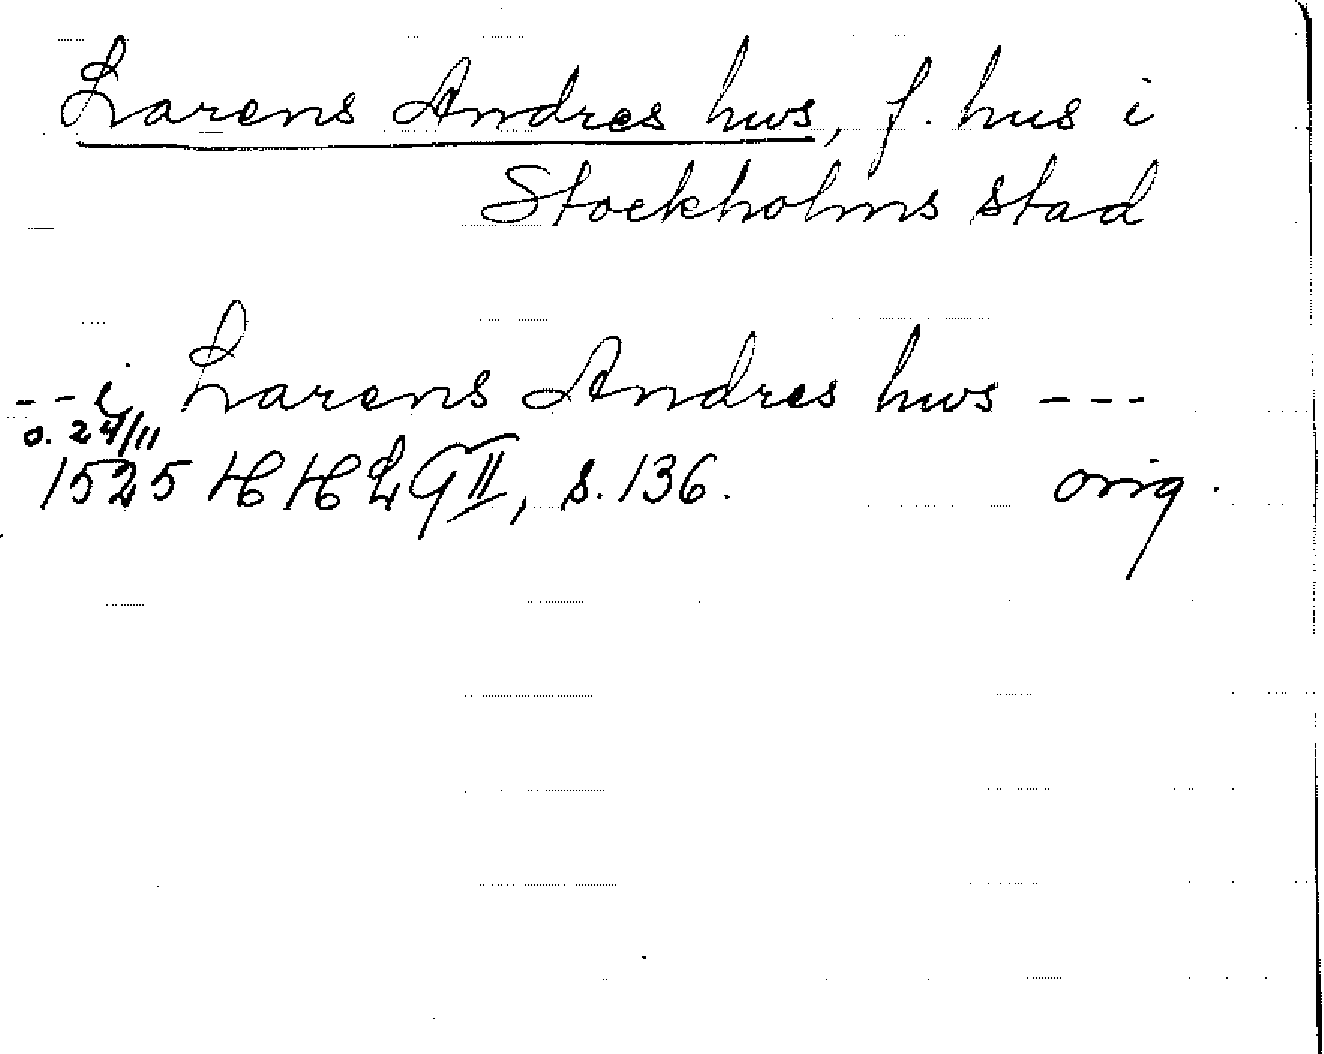 Larens Andres hws, f. hus i
Stockholms stad
--i Larens Andres hws ---
o. 24/11
1525 HHLG II, s. 136. orig.